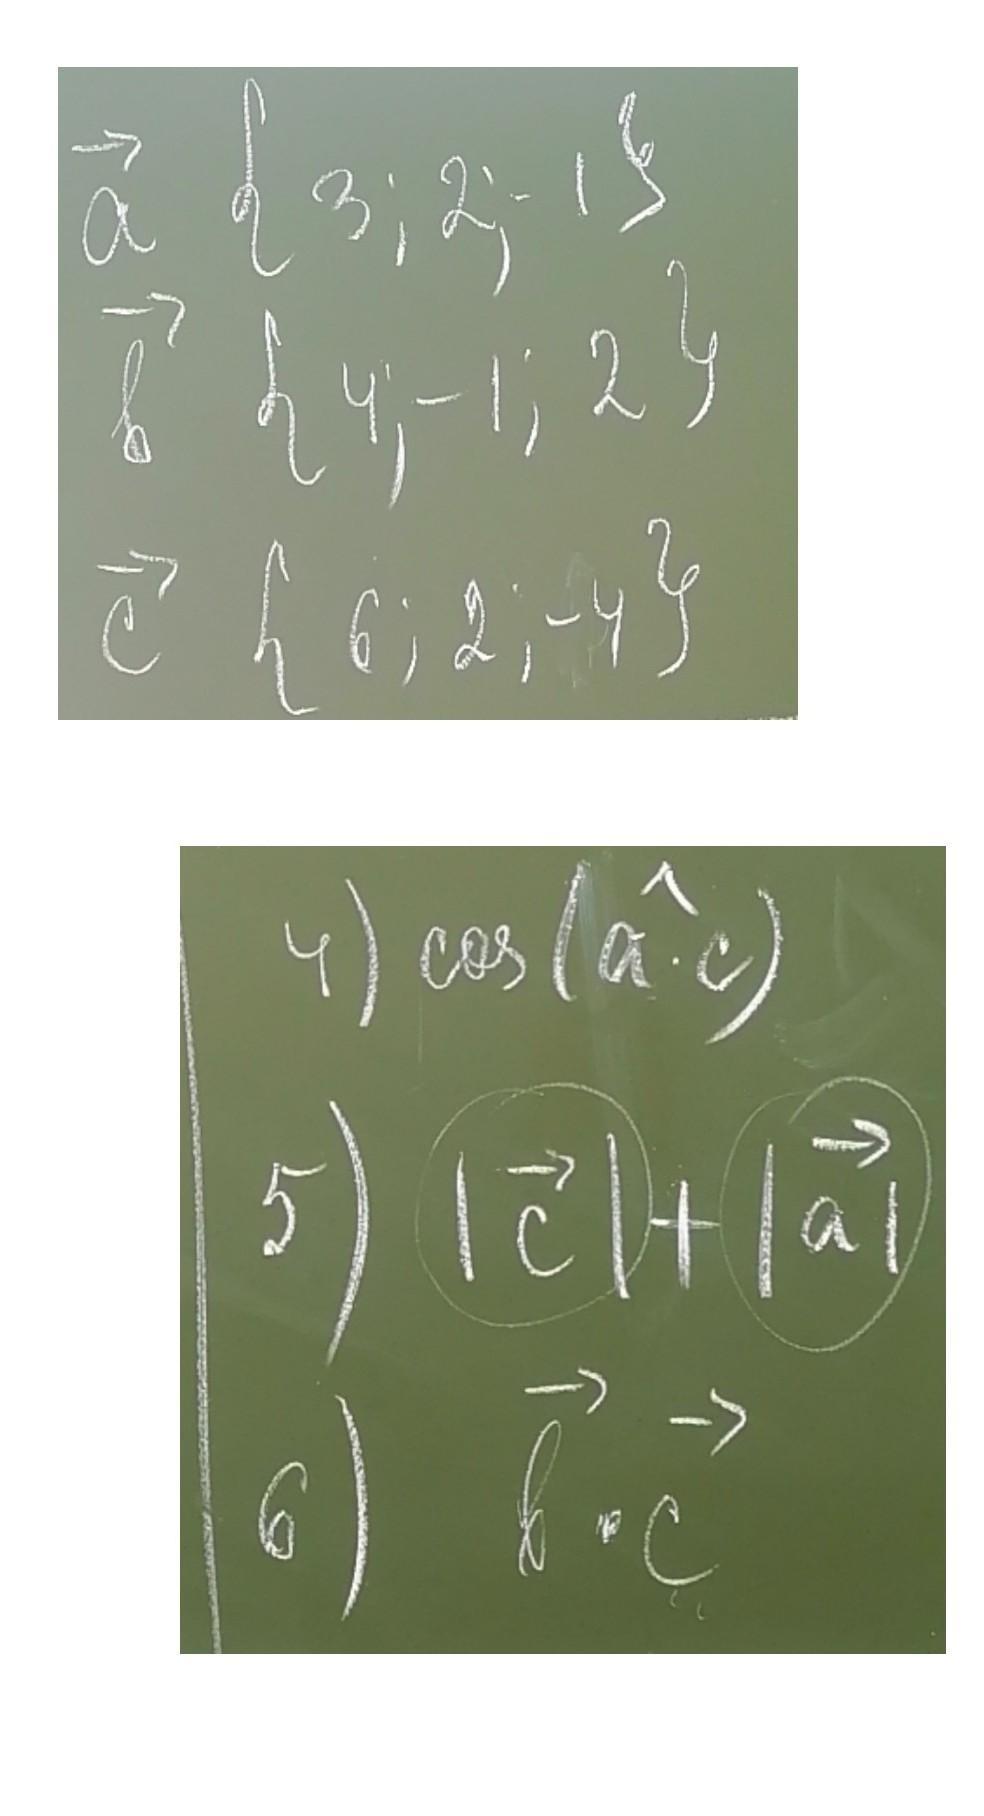 a⃗ {3; 2; -1}
b⃗ {4; -1; 2}
c⃗ {6; 2; -4}
4) cos(a^·c)
5) |c⃗| + |a⃗|
6) b⃗ · c⃗